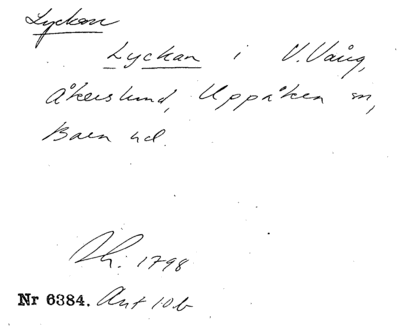 Lyckan
Lyckan i V. Vång,
Åkerslund, Uppåkra sn,
Bara hd.
Sk. 1798
Nr 6384. Akt 10b